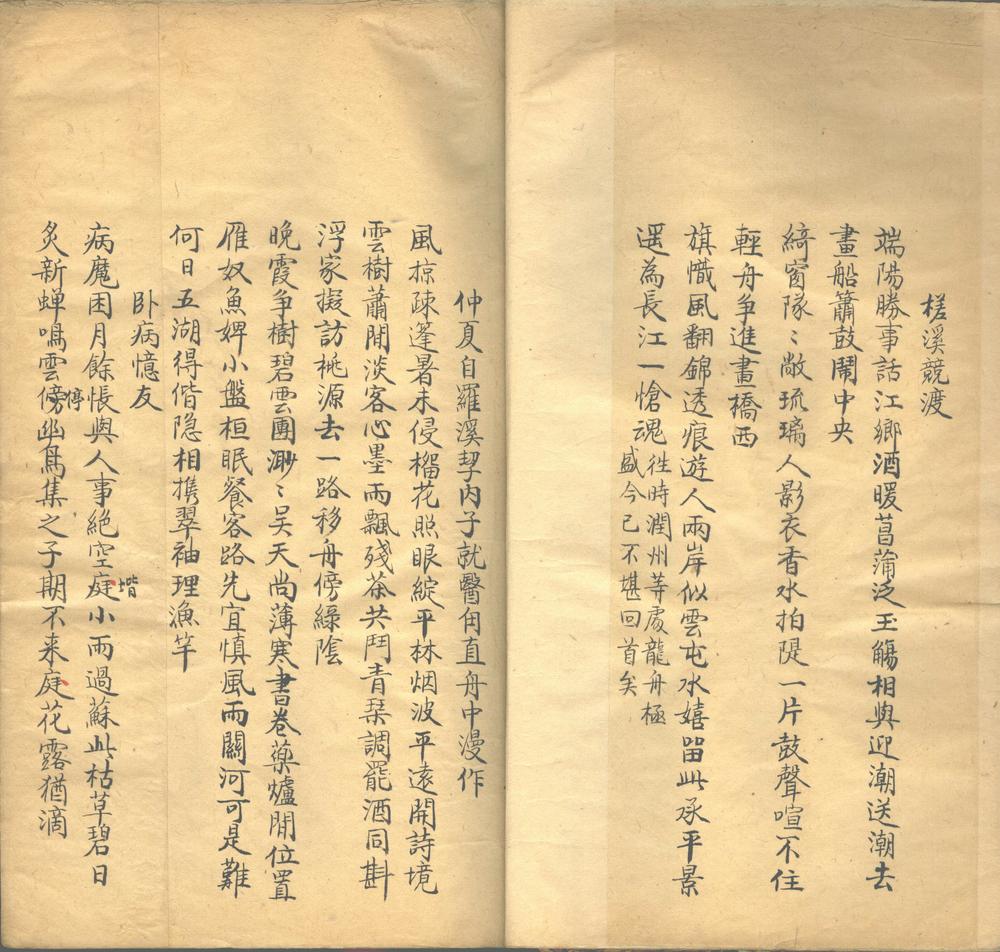 槎溪競渡
端陽勝事話江鄉酒暖菖蒲泛玉觴相與迎潮送潮去
畫船簫鼓鬧中央
綺窗隊〻敞琉璃人影衣香水拍隄一片鼓聲喧不住
輕舟爭進畫橋西
旗幟風翻錦透痕遊人兩岸似雲屯水嬉留此承平景
遥為長江一愴魂
徃時潤州等處龍舟極
盛今已不堪回首矣
仲夏自羅溪挈内子就醫甪直舟中漫作
風掠疎篷暑未侵榴花照眼綻平林烟波平遠開詩境
雲樹蕭閒淡客心墨雨飄殘茶共鬥青琹調罷酒同斟
浮家擬訪桃源去一路移舟傍緑陰
晚霞爭樹碧雲團渺〻吴天尚薄寒書卷藥爐閒位置
雁奴魚婢小盤桓眠餐客路先宜慎風雨關河可是難
何日五湖得偕隐相携翠袖理漁竿
卧病憶友
病魔困月餘悵與人事絶空庭小雨過蘇此枯草碧日
堦
炙新蝉鳴雲傍幽鳥集之子期不来庭花露猶滴
停